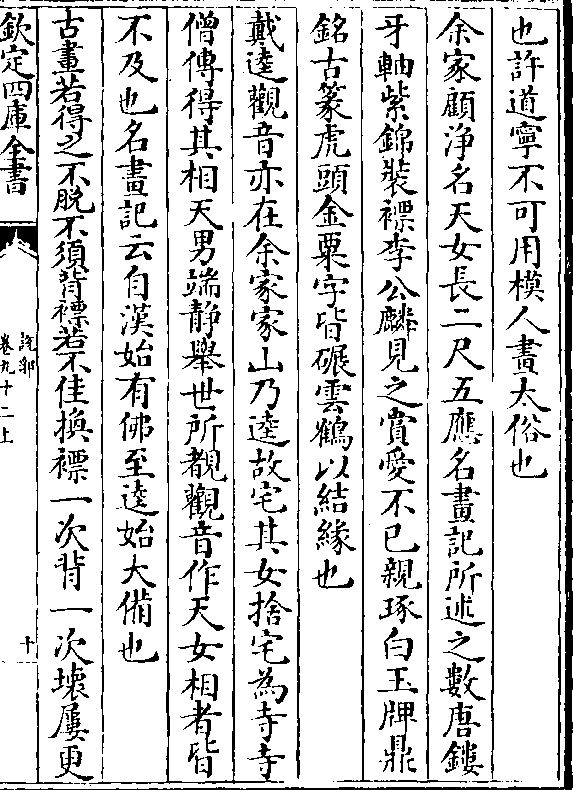 也許道寧不可用模人畫太俗也
余家顧淨名天女長二尺五應名畫記所述之數唐鏤
牙軸紫錦裝褾李公麟見之賞愛不已親琢白玉牌鼎
銘古篆虎頭金粟字皆碾雲鶴以結緣也
戴逵觀音亦在余家家山乃逵故宅其女捨宅為寺寺
僧傳得其相天男端静舉世所覩觀音作天女相者皆
不及也名畫記云自漢始有佛至逵始大備也
古畫若得之不脫不須背褾若不佳換褾一次背一次壞屢更
欽定四庫全書
說郛
卷九十二上
十